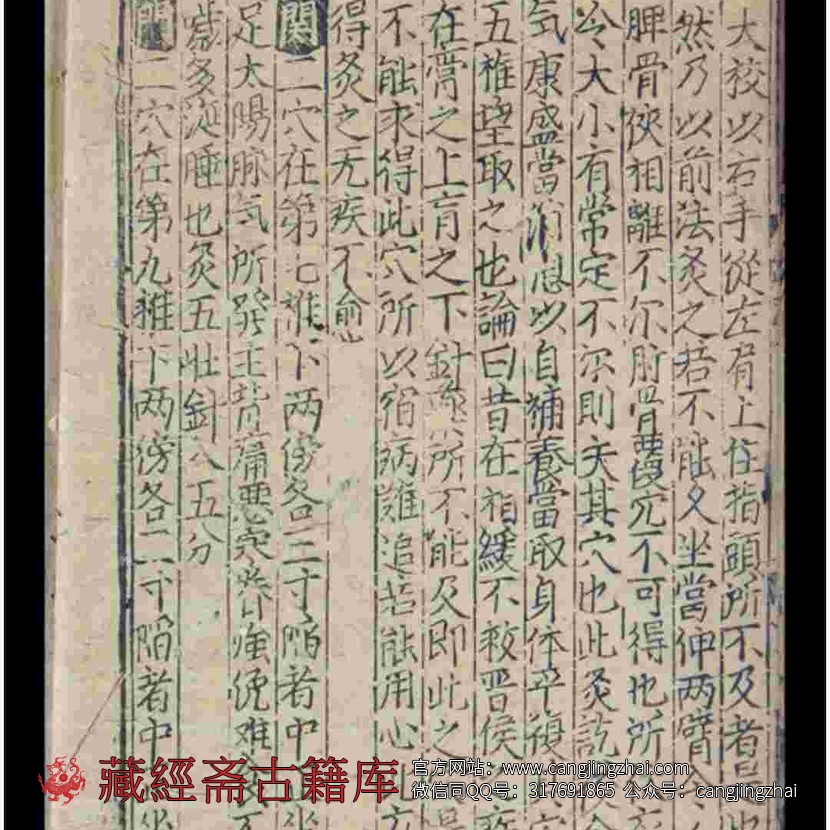 大校以右手從左肩上住指頭所不及者
然乃以前法灸之若不能久坐當伸两臂
胛骨俠相離不尔肘骨覆穴不可得也所
冷大小有常定不尔則失其穴也此灸訖
气康盛當消息以自補養當取身体平復
五椎望取之也論曰昔在相緩不救晋侯
在膏之上肓之下針藥所不能及即此之
不能求得此穴所以宿病難追若能用心
得灸之无疾不愈
関二穴在第七椎下两傍各三寸陷者中
足太陽脉气所發主背痛惡寒脊強俛难
多涎唾也灸五壮針入五分
門二穴在第九椎下两傍各二寸陷者中
藏經斋古籍库
官方网站：www.cangjingzhai.com
微信同QQ号：317691865 公众号：cangjingzhai